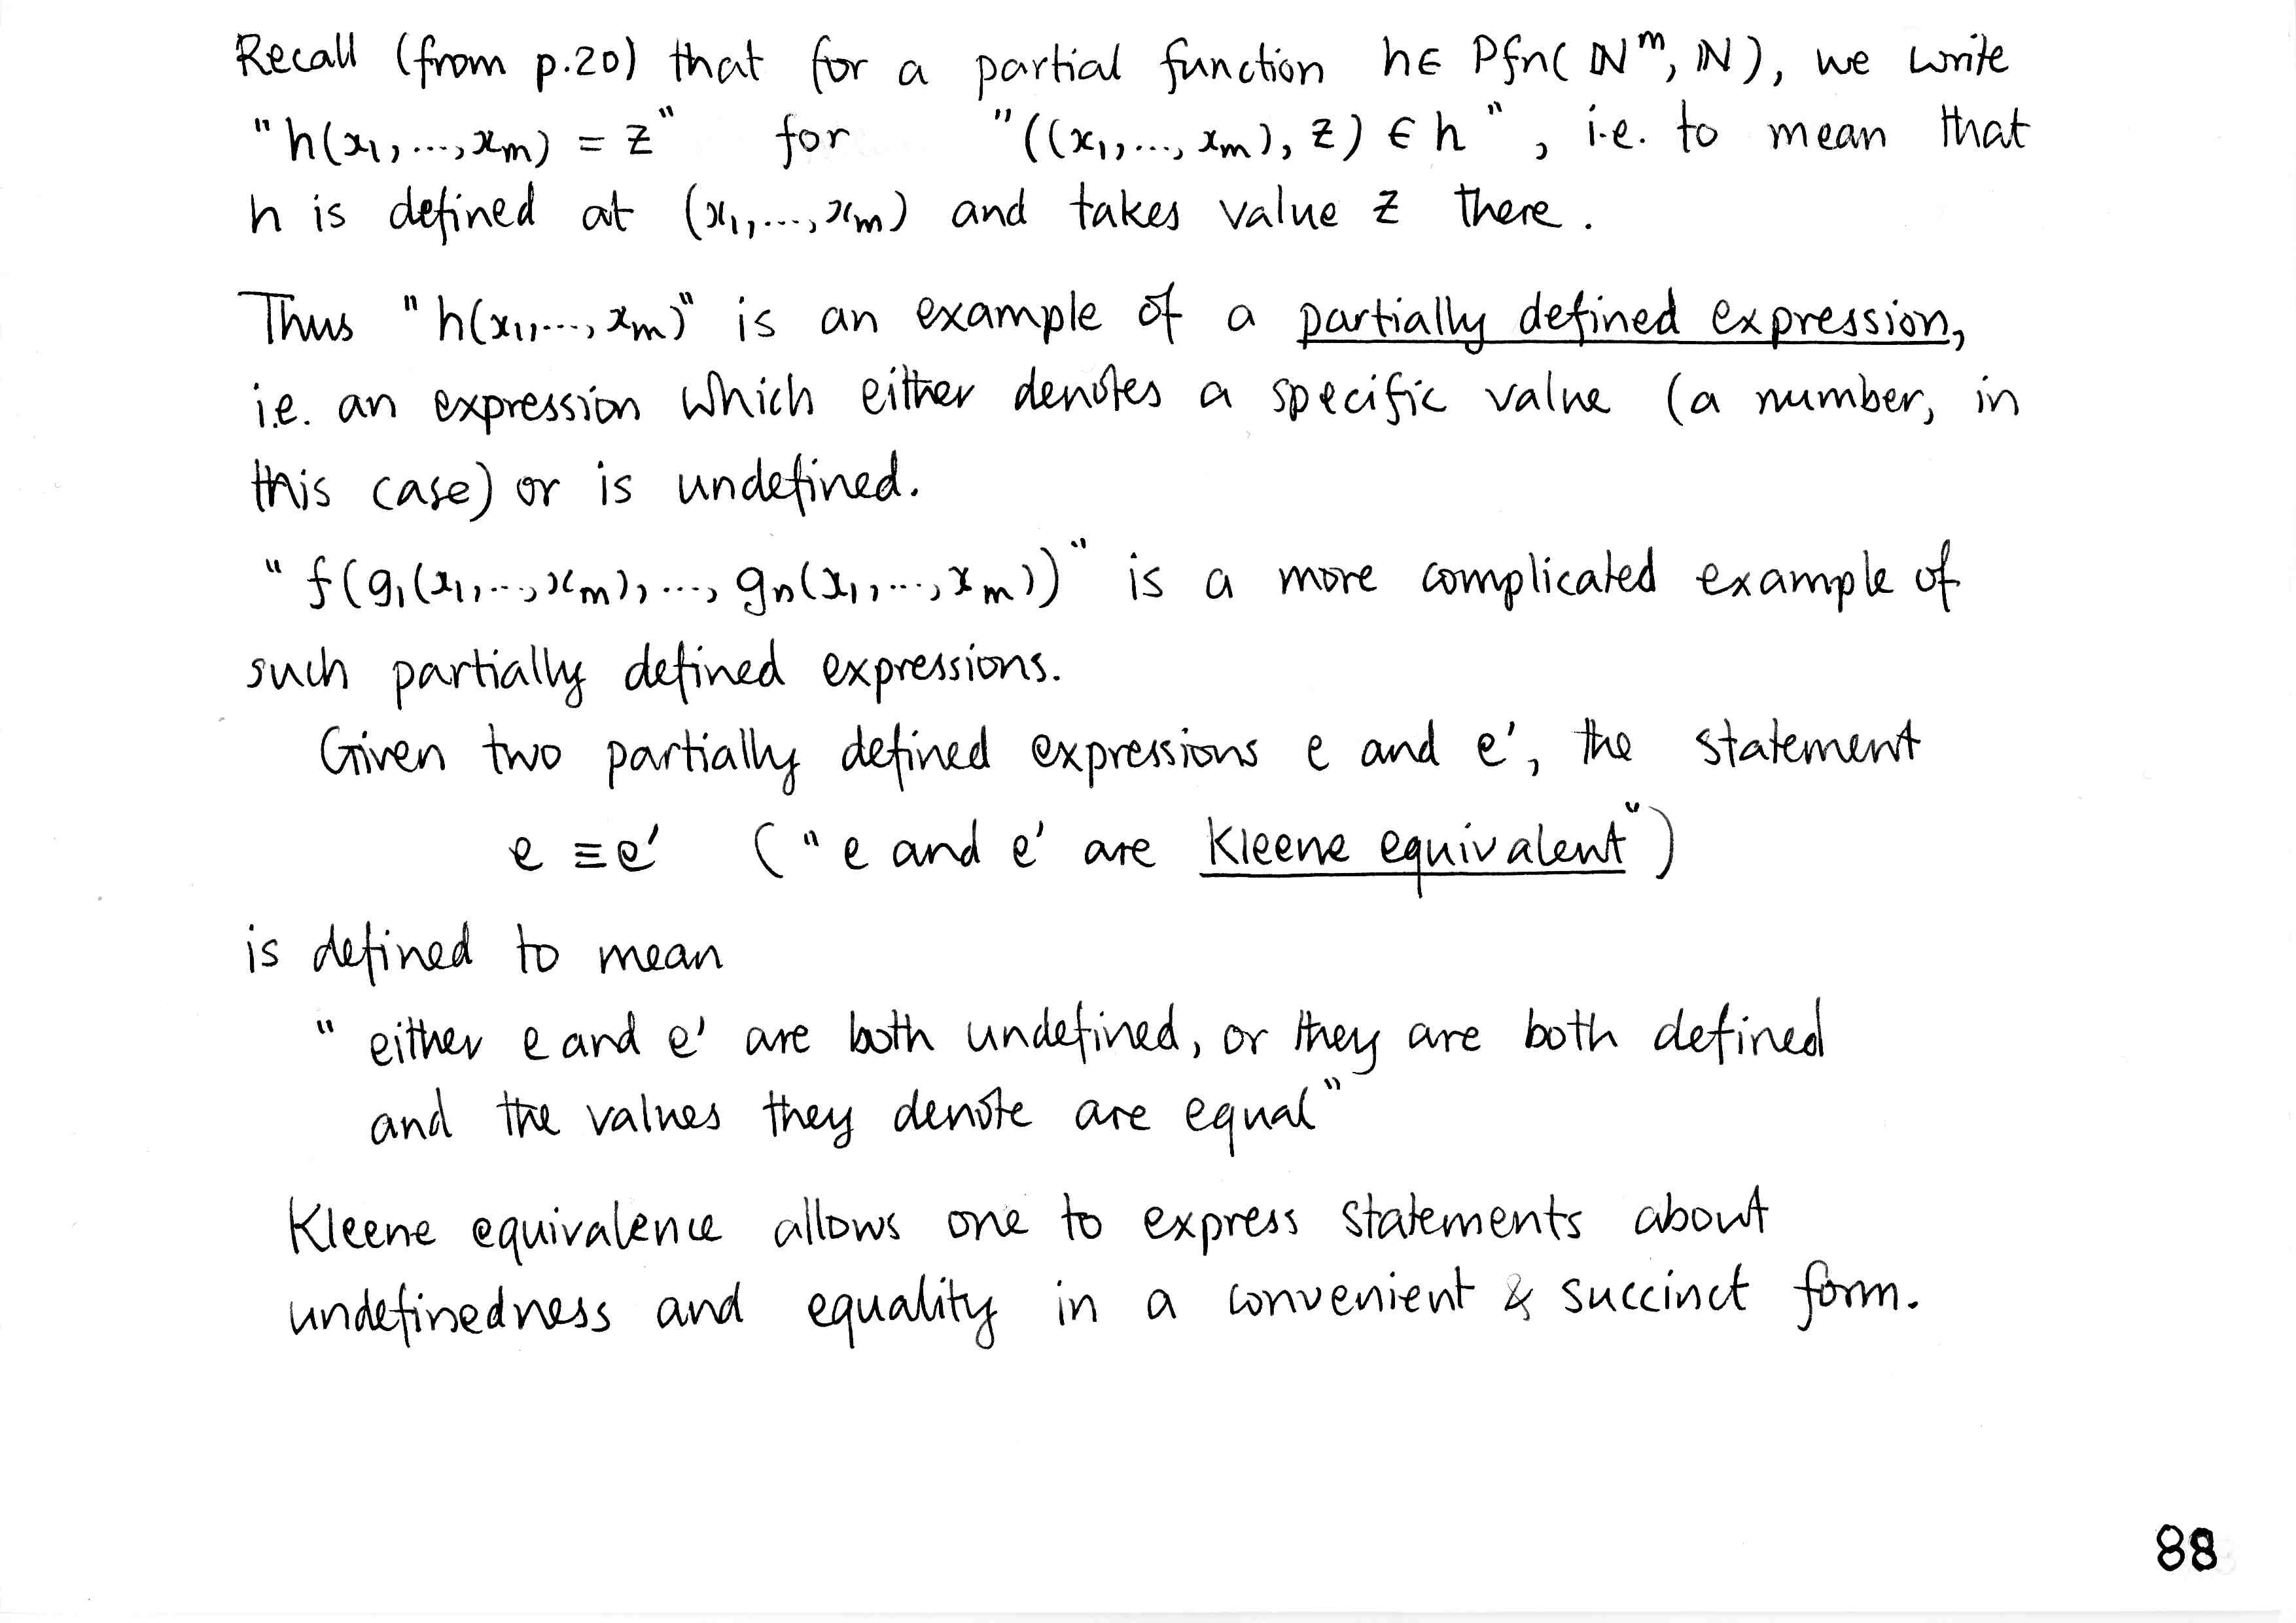 Recall (from p.20) that for a partial function h∈ Pfn(ℕᵐ, ℕ), we write
"h(x₁,...,xₘ) = z" for "((x₁,...,xₘ), z) ∈ h", i.e. to mean that
h is defined at (x₁,...,xₘ) and takes value z there.
Thus "h(x₁,...,xₘ)" is an example of a partially defined expression,
i.e. an expression which either denotes a specific value (a number, in
this case) or is undefined.
"f(g₁(x₁,...,xₘ),..., gₙ(x₁,...,xₘ))" is a more complicated example of
such partially defined expressions.
Given two partially defined expressions e and e', the statement
e ≡ e' ("e and e' are Kleene equivalent")
is defined to mean
"either e and e' are both undefined, or they are both defined
and the values they denote are equal"
Kleene equivalence allows one to express statements about
undefinedness and equality in a convenient & succinct form.
88